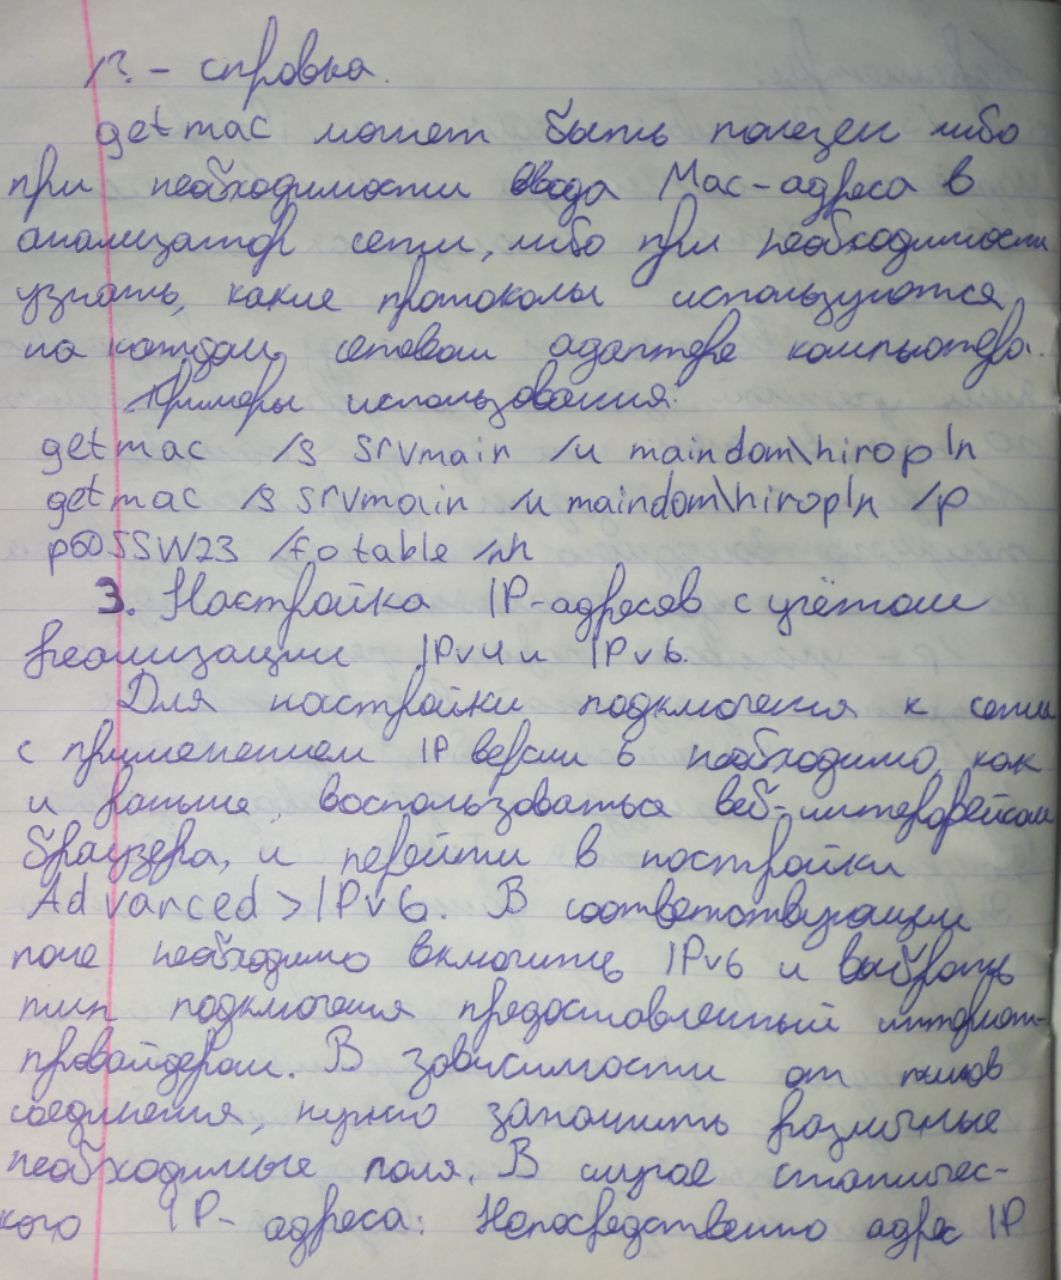 /? - справка.
getmac может быть полезен либо
при необходимости ввода Mac-адреса в
анализатор сети, либо при необходимости
узнать, какие протоколы используются
на каждом сетевом адаптере компьютера.
Примеры использования:
getmac /s srvmain /u maindom\hiropln
getmac /s srvmain /u maindom\hiropln /p
p@SSW23 /fo table /nh
3. Настройка IP-адресов с учётом
реализации IPv4 и IPv6.
Для настройки подключения к сети
с применением IP версии 6 необходимо, как
и раньше, воспользоваться веб-интерфейсом
браузера, и перейти в настройки
Advanced > IPv6. В соответствующем
поле необходимо включить IPv6 и выбрать
тип подключения предоставленный интернет-
провайдером. В зависимости от типов
соединения, нужно заполнить различные
необходимые поля. В случае статичес-
кого IP-адреса: Непосредственно адрес IP